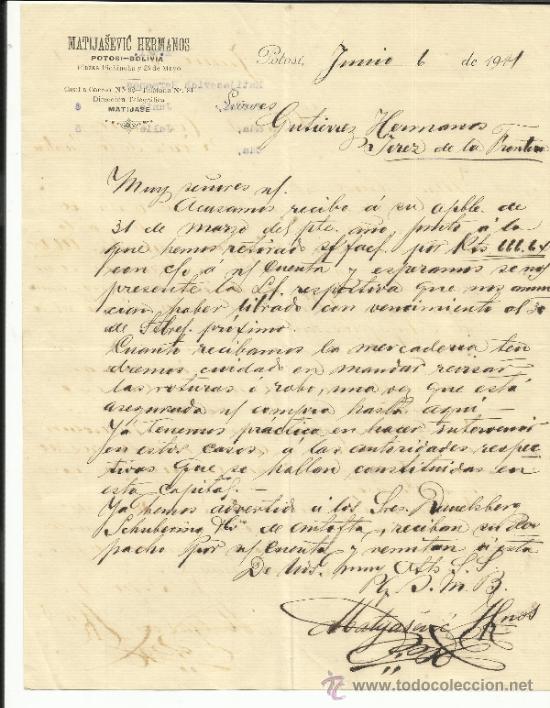 MATIJAŠEVIĆ HERMANOS
POTOSI-BOLIVIA
Dirección Telegráfica
MATIJAŠE
Potosí, Junio 6 de 1911
Señores
Gutierrez Hermanos
Jerez de la Frontera
Muy señores n/.
Acusamos recibo á su apble. de
31 de Marzo del pte. año, junto á la
que hemos retirado s/ fact. por
con c/o á n/ Cuenta y esperamos se nos
presente la L/. respectiva que nos anun
cian haber librado con vencimiento al 30
de Stbre. próximo.
Cuanto recibamos la mercaderia ten
dremos cuidado en mandar revisar
las roturas ó robo, una vez que está
asegurada n/ compra hasta aquí —
Ya tenemos práctica en hacer intervenir
en estos casos, á las autoridades respec
tivas que se hallan constituidas en
esta capital. —
Ya hemos advertido á los Sres.
de reciban su des
pacho por n/ Cuenta y remitan á esta
De Uds. muy Atts. S. S.
Q. B. S. M.
Matijašević Hnos
www.todocoleccion.net